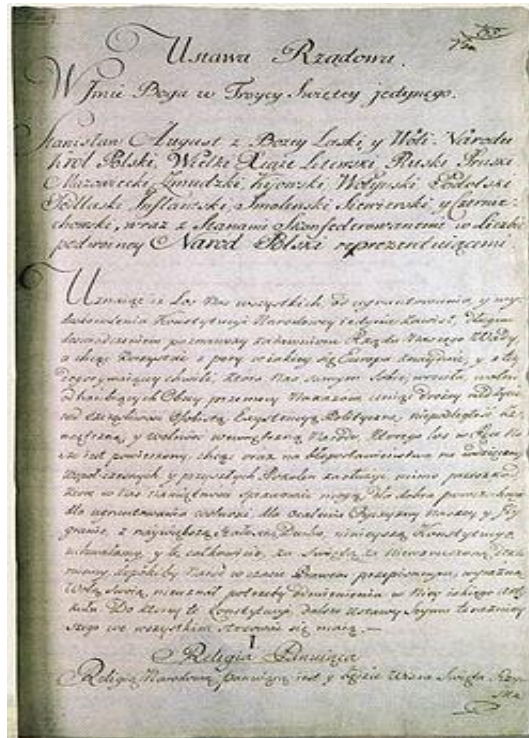 Ustawa Rządowa.
W Imie Boga w Troycy Swiętey jedynego.
Stanisław August z Bozey Łaski, y Woli Narodu
Krol Polski, Wielki Xiąże Litewski, Ruski Pruski
Mazowiecki, Zmudzki, Kijowski, Wołyński, Podolski
Podlaski, Inflantski, Smoleński Siewierski, y Czernie-
chowski, wraz z Stanami Skonfederowanemi w liczbie
podwoyney Narod Polski reprezentuiącemi
Uznaiąc iz Los Nas wszystkich od ugruntowania, y wy-
doskonalenia Konstytucyi Narodowey iedynie zawisł, długim
doswiadczeniem poznawszy zadawnione Rządu Naszego Wady,
a chcąc korzystać z pory w iakiey się Europa znayduie, y z tey
dogorywaiącey chwili, ktora Nas samym Sobie wrociła, wolni
od hanbiących Obcey przemocy Nakazow ceniąc drozey nad życie
nad szczęsliwosc Osobistą Exystencyą Polityczną, niepodległosc ze-
wnętrzną, y wolnosc wewnętrzną Narodu, ktorego los w Ręce Na-
sze iest powierzony, chcąc oraz na błogosławienstwo na wdzięcznosc
Wspołczesnych y przyszłych Pokolen zasłużyc, mimo przeszkod
ktore w Nas namiętnosc sprawowac mogą, dla dobra powszechnego
dla ugruntowania wolnosci, dla ocalenia Oyczyzny Naszey, y Jey
granic, z naywiększą stałoscią Ducha, ninieyszą Konstytucyą
uchwalamy, y tę całkowicie, za Swiętą, za Niewzruszoną
dopokiby Narod w czasie Prawem przepisanym, wyraźną
Wolą swoią, nieuznał potrzeby odmienienia w Niey iakiego arty-
kułu. Do ktorey to Konstytucyi, dalsze Ustawy Seymu teraznie-
yszego we wszystkim stosowac się maią.—
I
Religia Panuiąca
Religią Narodową panuiącą iest y będzie Wiara Swięta Rzym-
ska